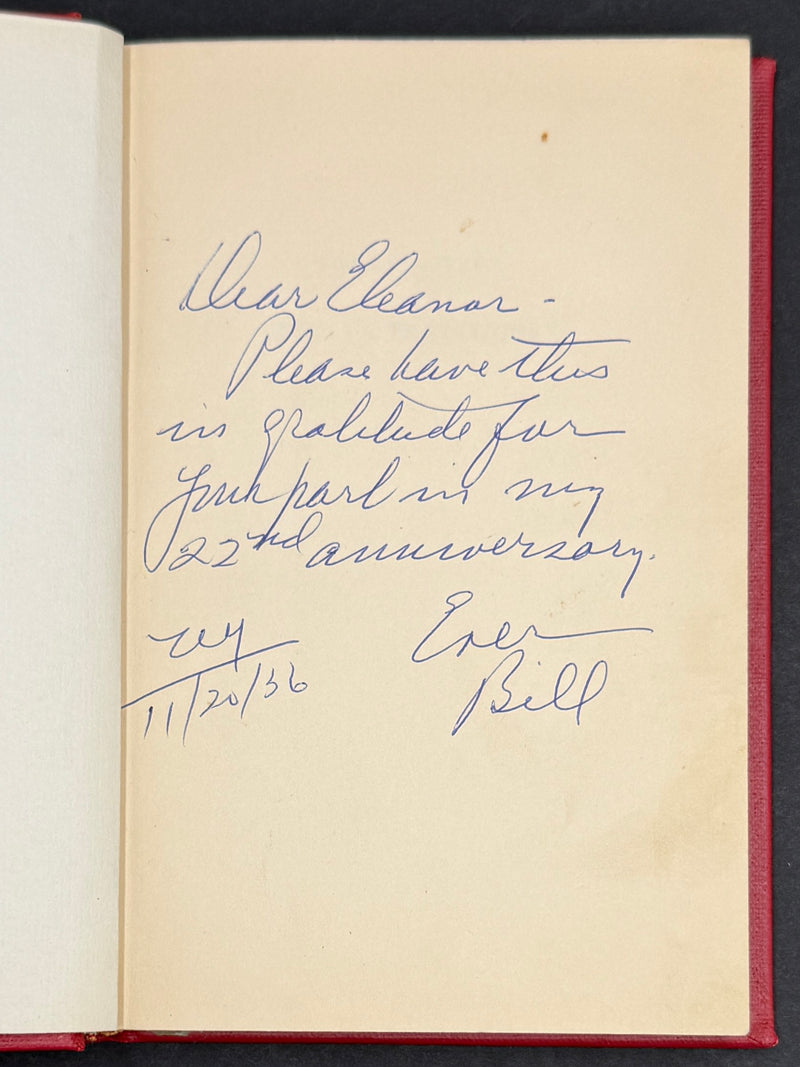 Dear Eleanor -
Please have this
in gratitude for
your part in my
22nd anniversary.
Ever
Bill
NY
11/20/56